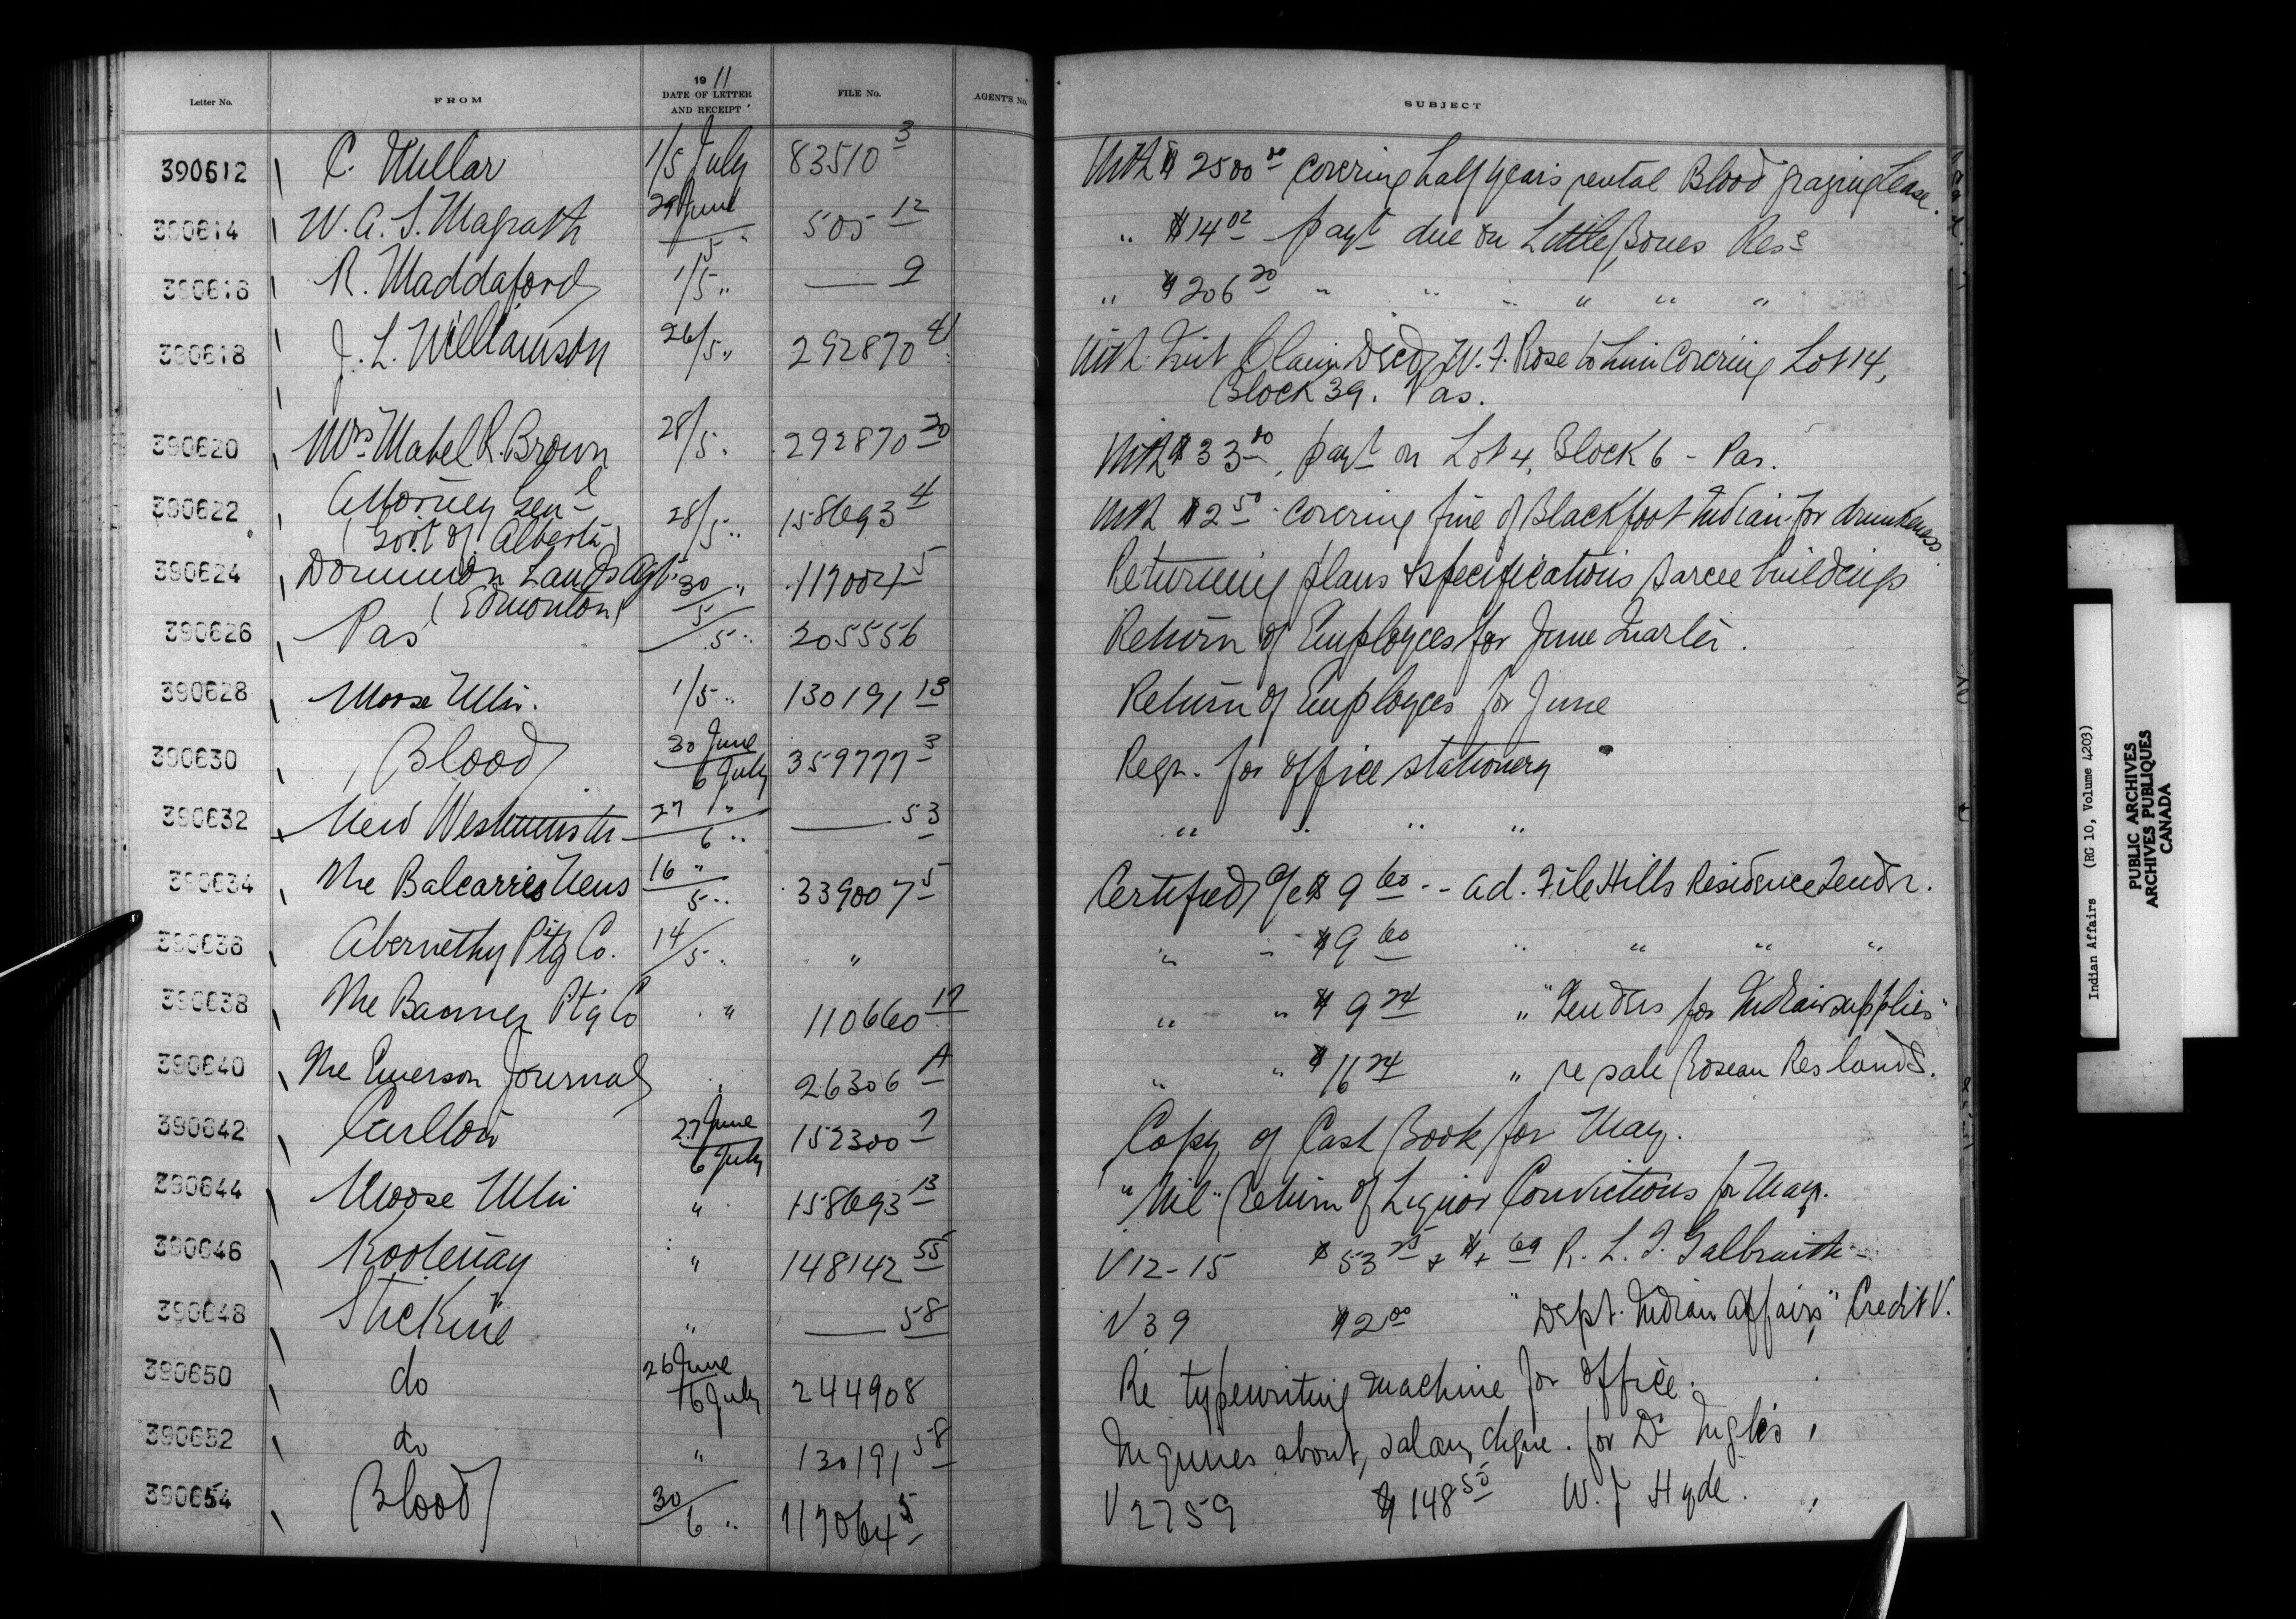 Letter No. FROM 1911 DATE OF LETTER AND RECEIPT FILE No. AGENT'S No. SUBJECT
390612 C. Millar 1/5 July 83510 3 With $2500 00 covering half years rental Blood grazing Lease.
390614 W. A. S. Magrath 29 June / 5 " 505 12 " $14 02 payt due on Little Bones Res
390616 R. Maddaford 1/5 " — 9 " $206 20 " " " " " "
390618 J. L. Williamson 26/5 " 292870 4 With Quit Claim Deed W. F. Rose to him covering Lot 14,
Block 39. Pas.
390620 Mrs Mabel R. Brown 28/5 " 292870 30 With $33 00, payt on Lot 4, Block 6 - Pas.
390622 Attorney Genl 28/5 " 158693 4 With $2 50 covering fine of Blackfoot Indian for drunkeness
(Govt of Alberta)
390624 Dominion Lands Agt 30/5 " 117004 5 Returning plans & specifications Sarcee buildings
(Edmonton)
390626 Pas /5 " 205556 Return of Employees for June Quarter.
390628 Moose Mtn. 1/5 " 130191 13 Return of Employees for June
390630 Blood 30 June / 6 July 359777 3 Reqn. for office stationery
390632 New Westminster 27 " / 6 " — 53 " " " "
390634 The Balcarres News 16 " / 5 " 339007 5 Certified a/c $9 60 -- ad. File Hills Residence Tender.
390636 Abernethy Ptg Co. 14/5 " " " " $9 60 " " " "
390638 The Banner Ptg Co " 110660 17 " " $9 24 " "Tenders for Indian supplies"
390640 The Emerson Journal " 26306 A " " $16 24 " re sale Roseau Res lands.
390642 Carlton 27 June / 6 July 152300 7 Copy of Cash Book for May.
390644 Moose Mtn " 158693 13 "Nil" Return of Liquor Convictions for May.
390646 Kootenay " 148142 55 V 12-15 $53 25 & R. L. T. Galbraith
390648 Stickine " — 58 V 39 $2 00 "Dept. Indian Affairs" Credit V.
390650 do 26 June / 6 July 244908 Re typewriting machine for office.
390652 do " 130191 58 Inquiries about salary cheque for Dr Inglis
390654 Blood 30/6 " 117064 5 V 2759 $148 50 W. J. Hyde.
Indian Affairs (RG 10, Volume 4203)
PUBLIC ARCHIVES
ARCHIVES PUBLIQUES
CANADA